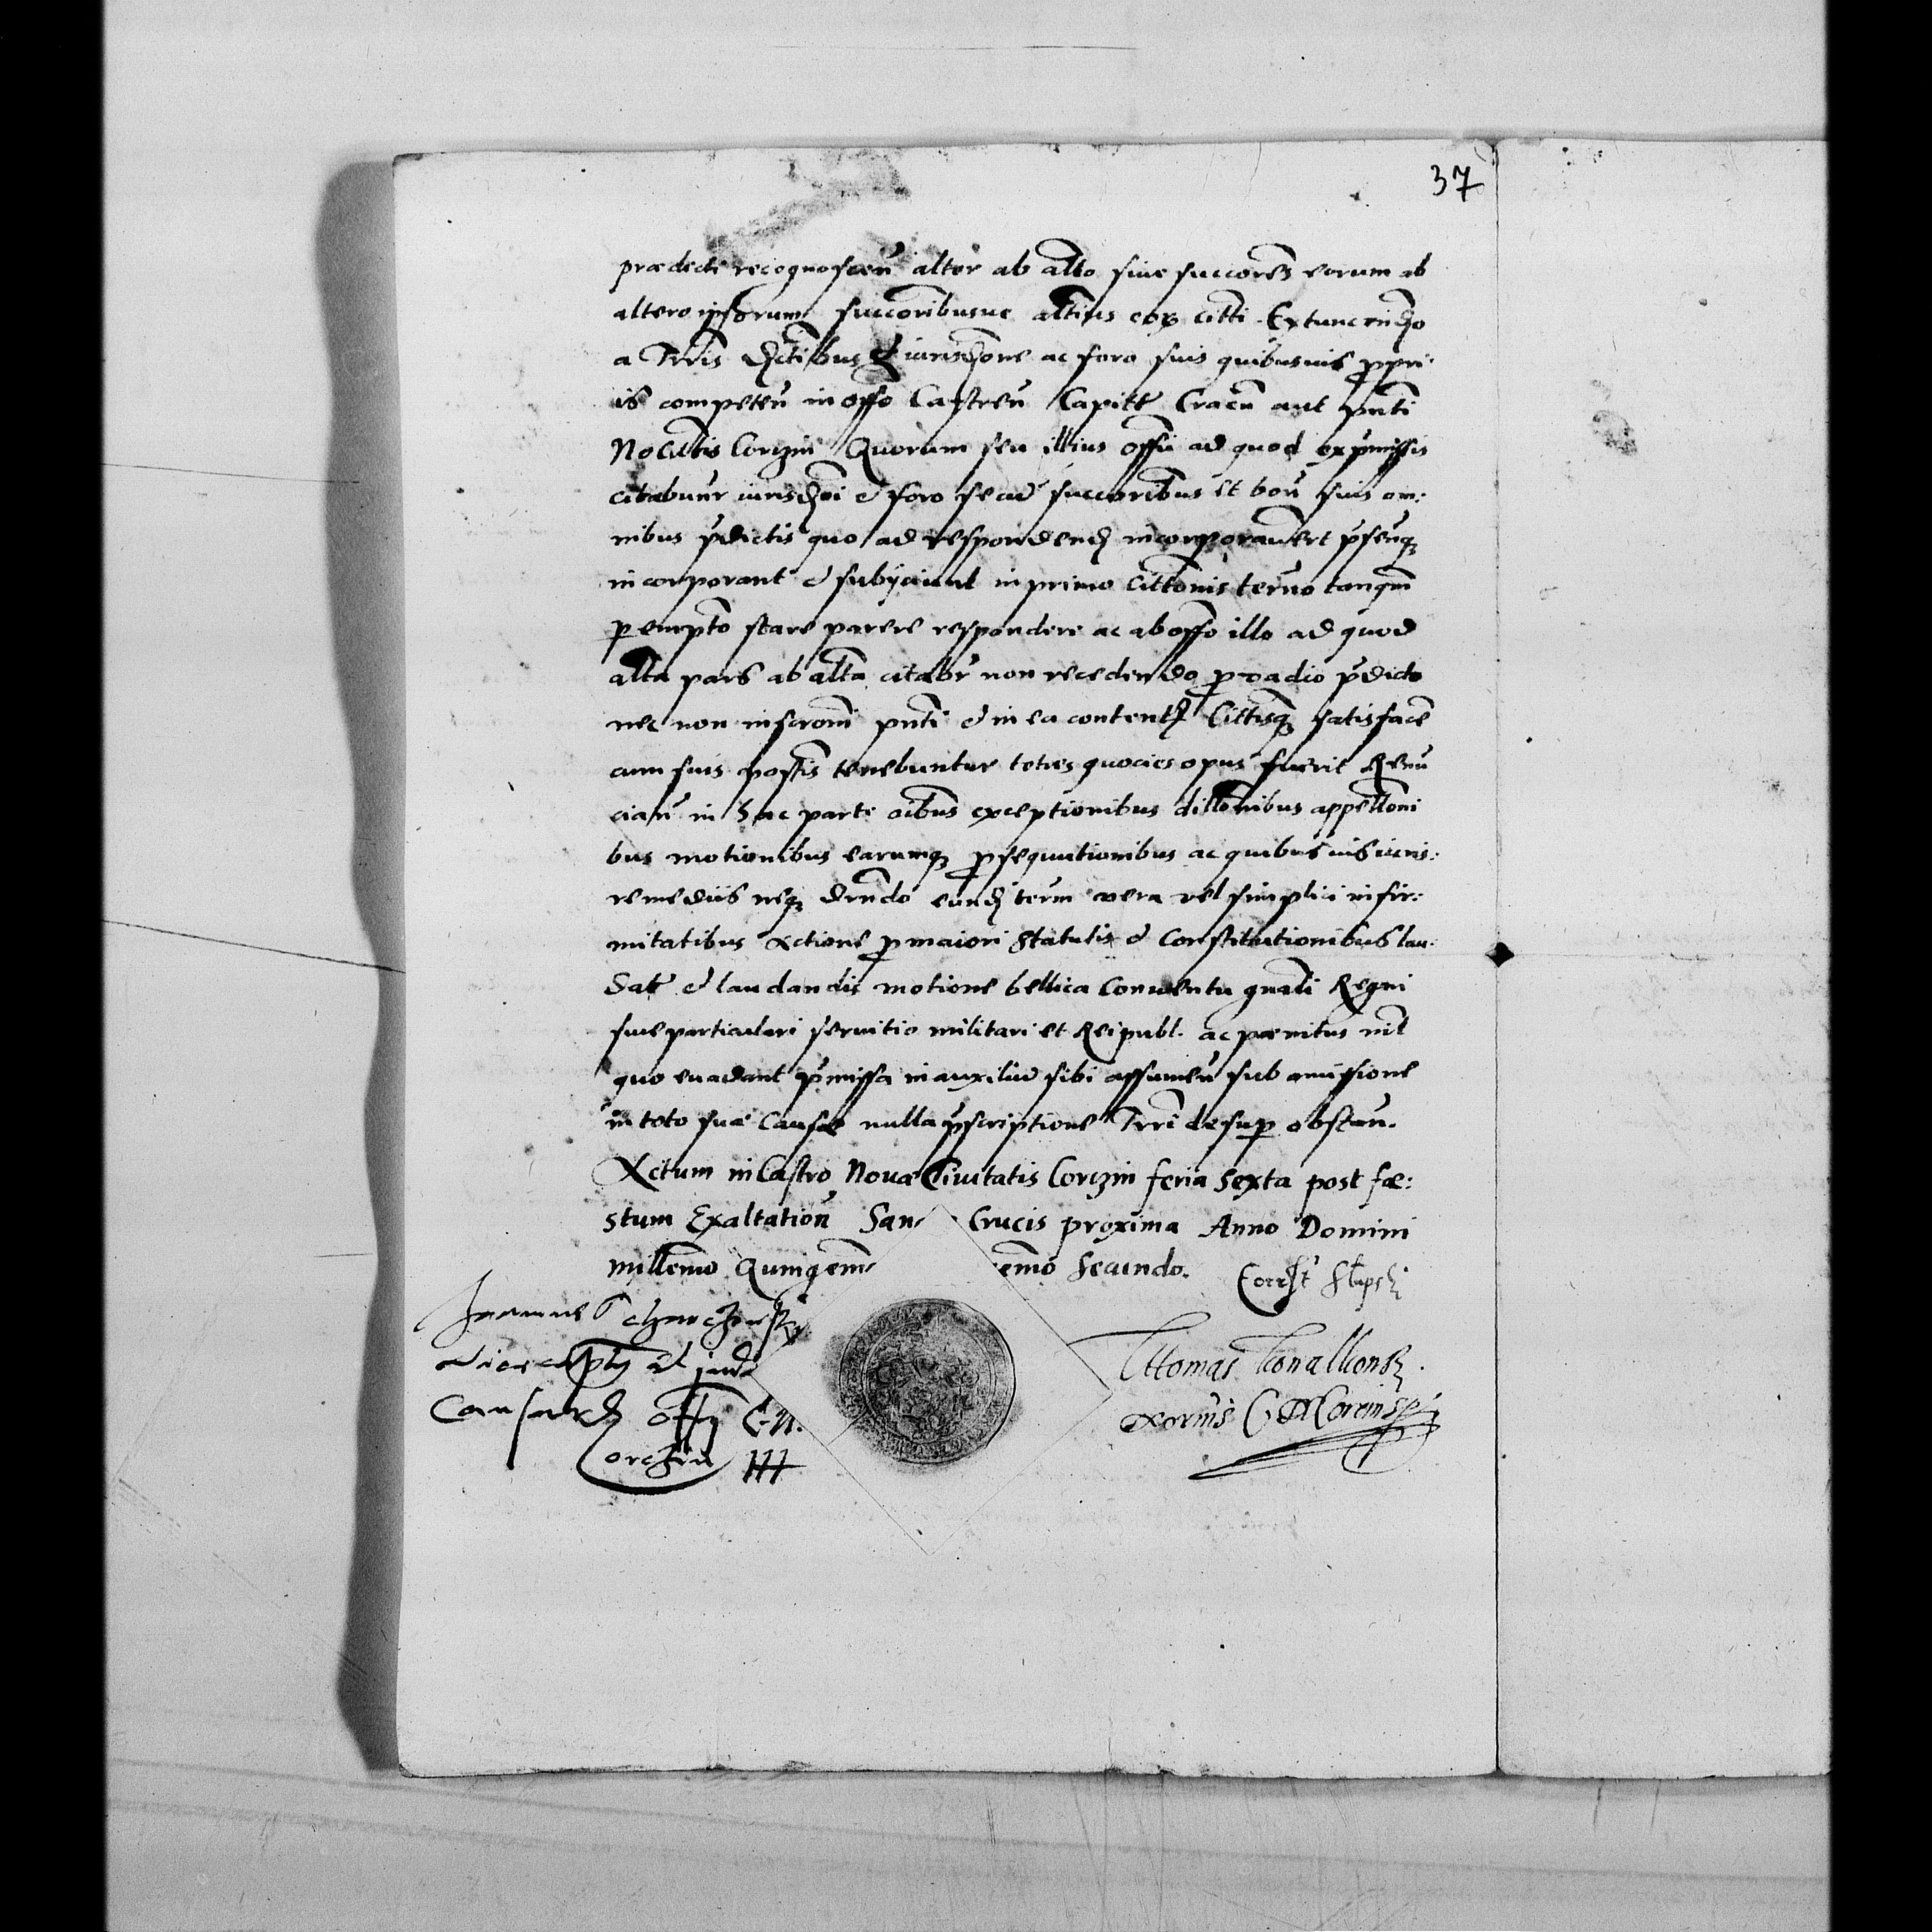 37
prædicti recognoscen̄ alter ab alt̄o siue succores eorum ab
altero ipsorum succoribusue alt̄ius eoꝝ citt̄i. Extunc recedo
a Tr̄ris dictibus et iurisdc̄one ac foro suis quibusuis propri-
is competen̄ in off̄o Castren̄ Capit̄t Crac̄n aut pn̄ti
No Cit̄tis Corczin Quorum seu illius offii ad quod ex p̄missis
citabun̄r iurisdc̄oi et foro se cum succoribus et bon̄ suis om:
nibus p̄dictis quo ad respondend̄ incorporauert p̄senꝗ
incorporant et subijciunt in primo Citt̄onis ter̄no tanqm̄
peremptō stare parere respondere ac ab off̄o illo ad quod
alt̄a pars ab alt̄a citabr̄ non recedendo pro vadio p̄dicto
nec non inscr̄oni pn̄ti et in ea contentꝭ Citt̄isꝗ satisfacē
cum suis post̄is tenebuntur toties quocies opus fuerit Renū
cian̄ in hac parte oībus exceptionibus dill̄onibus appell̄oni
bus motionibus earumꝗ prosequutionibus ac quibusuis iuris:
remediis neꝗ dn̄do eund̄ ter̄m vera vel simplici infir:
mitatibus Actione pro maiori Statutis et Constitutionibus lau-
dat̄ et laudandis motione bellica Conuentu gn̄ali Regni
siue particulari seruitio militari et Reipubl. ac pœnitus nīl
quo euadant p̄missa in auxiliū sibi assumen̄ sub amissione
in toto suæ Causæ nulla p̄scriptione Tr̄ri desup obstan̄.
Actum in Castro Nouæ Ciuitatis Corczin feria Sexta post fæ:
stum Exaltation̄ San Crucis proxima Anno Domini
millēmo Quingem̄ emo Secundo.
Joannes
et jud
Causar off̄ij C. N.
Corchin
Thomas